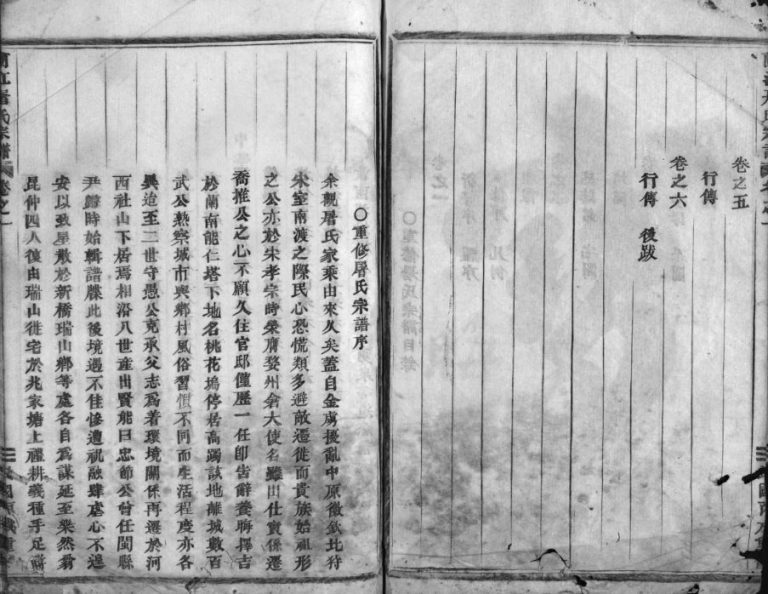 卷之五
行傳
卷之六
行傳 後跋
○重修屠氏宗譜序
余觀屠氏家乘由來久矣蓋自金虜擾亂中原徽欽北狩
宋室南渡之際民心恐慌類多避敵遷徙而貴族始祖彤
之公亦於宋孝宗時榮膺婺州倉大使名雖出仕實係遷
喬推公之心不願久住官邸僅歷一任卽告辭養晦擇吉
於蘭南能仁塔下地名桃花塢停居高躅該地離城數百
武公熟察城市與鄉村風俗習慣不同而生活程度亦各
異迨至二世守愚公克承父志爲着環境關係再遷於河
西社山下居焉相沿八世產出賢能曰忠節公曾任閩縣
尹歸時始輯譜牒此後境遇不佳慘遭祝融肆虐心不遑
安以致星散於新橋瑞山鄉等處各自爲謀延至榮然翁
昆仲四人復由瑞山徙宅於兆家塘上禮耕義種手足